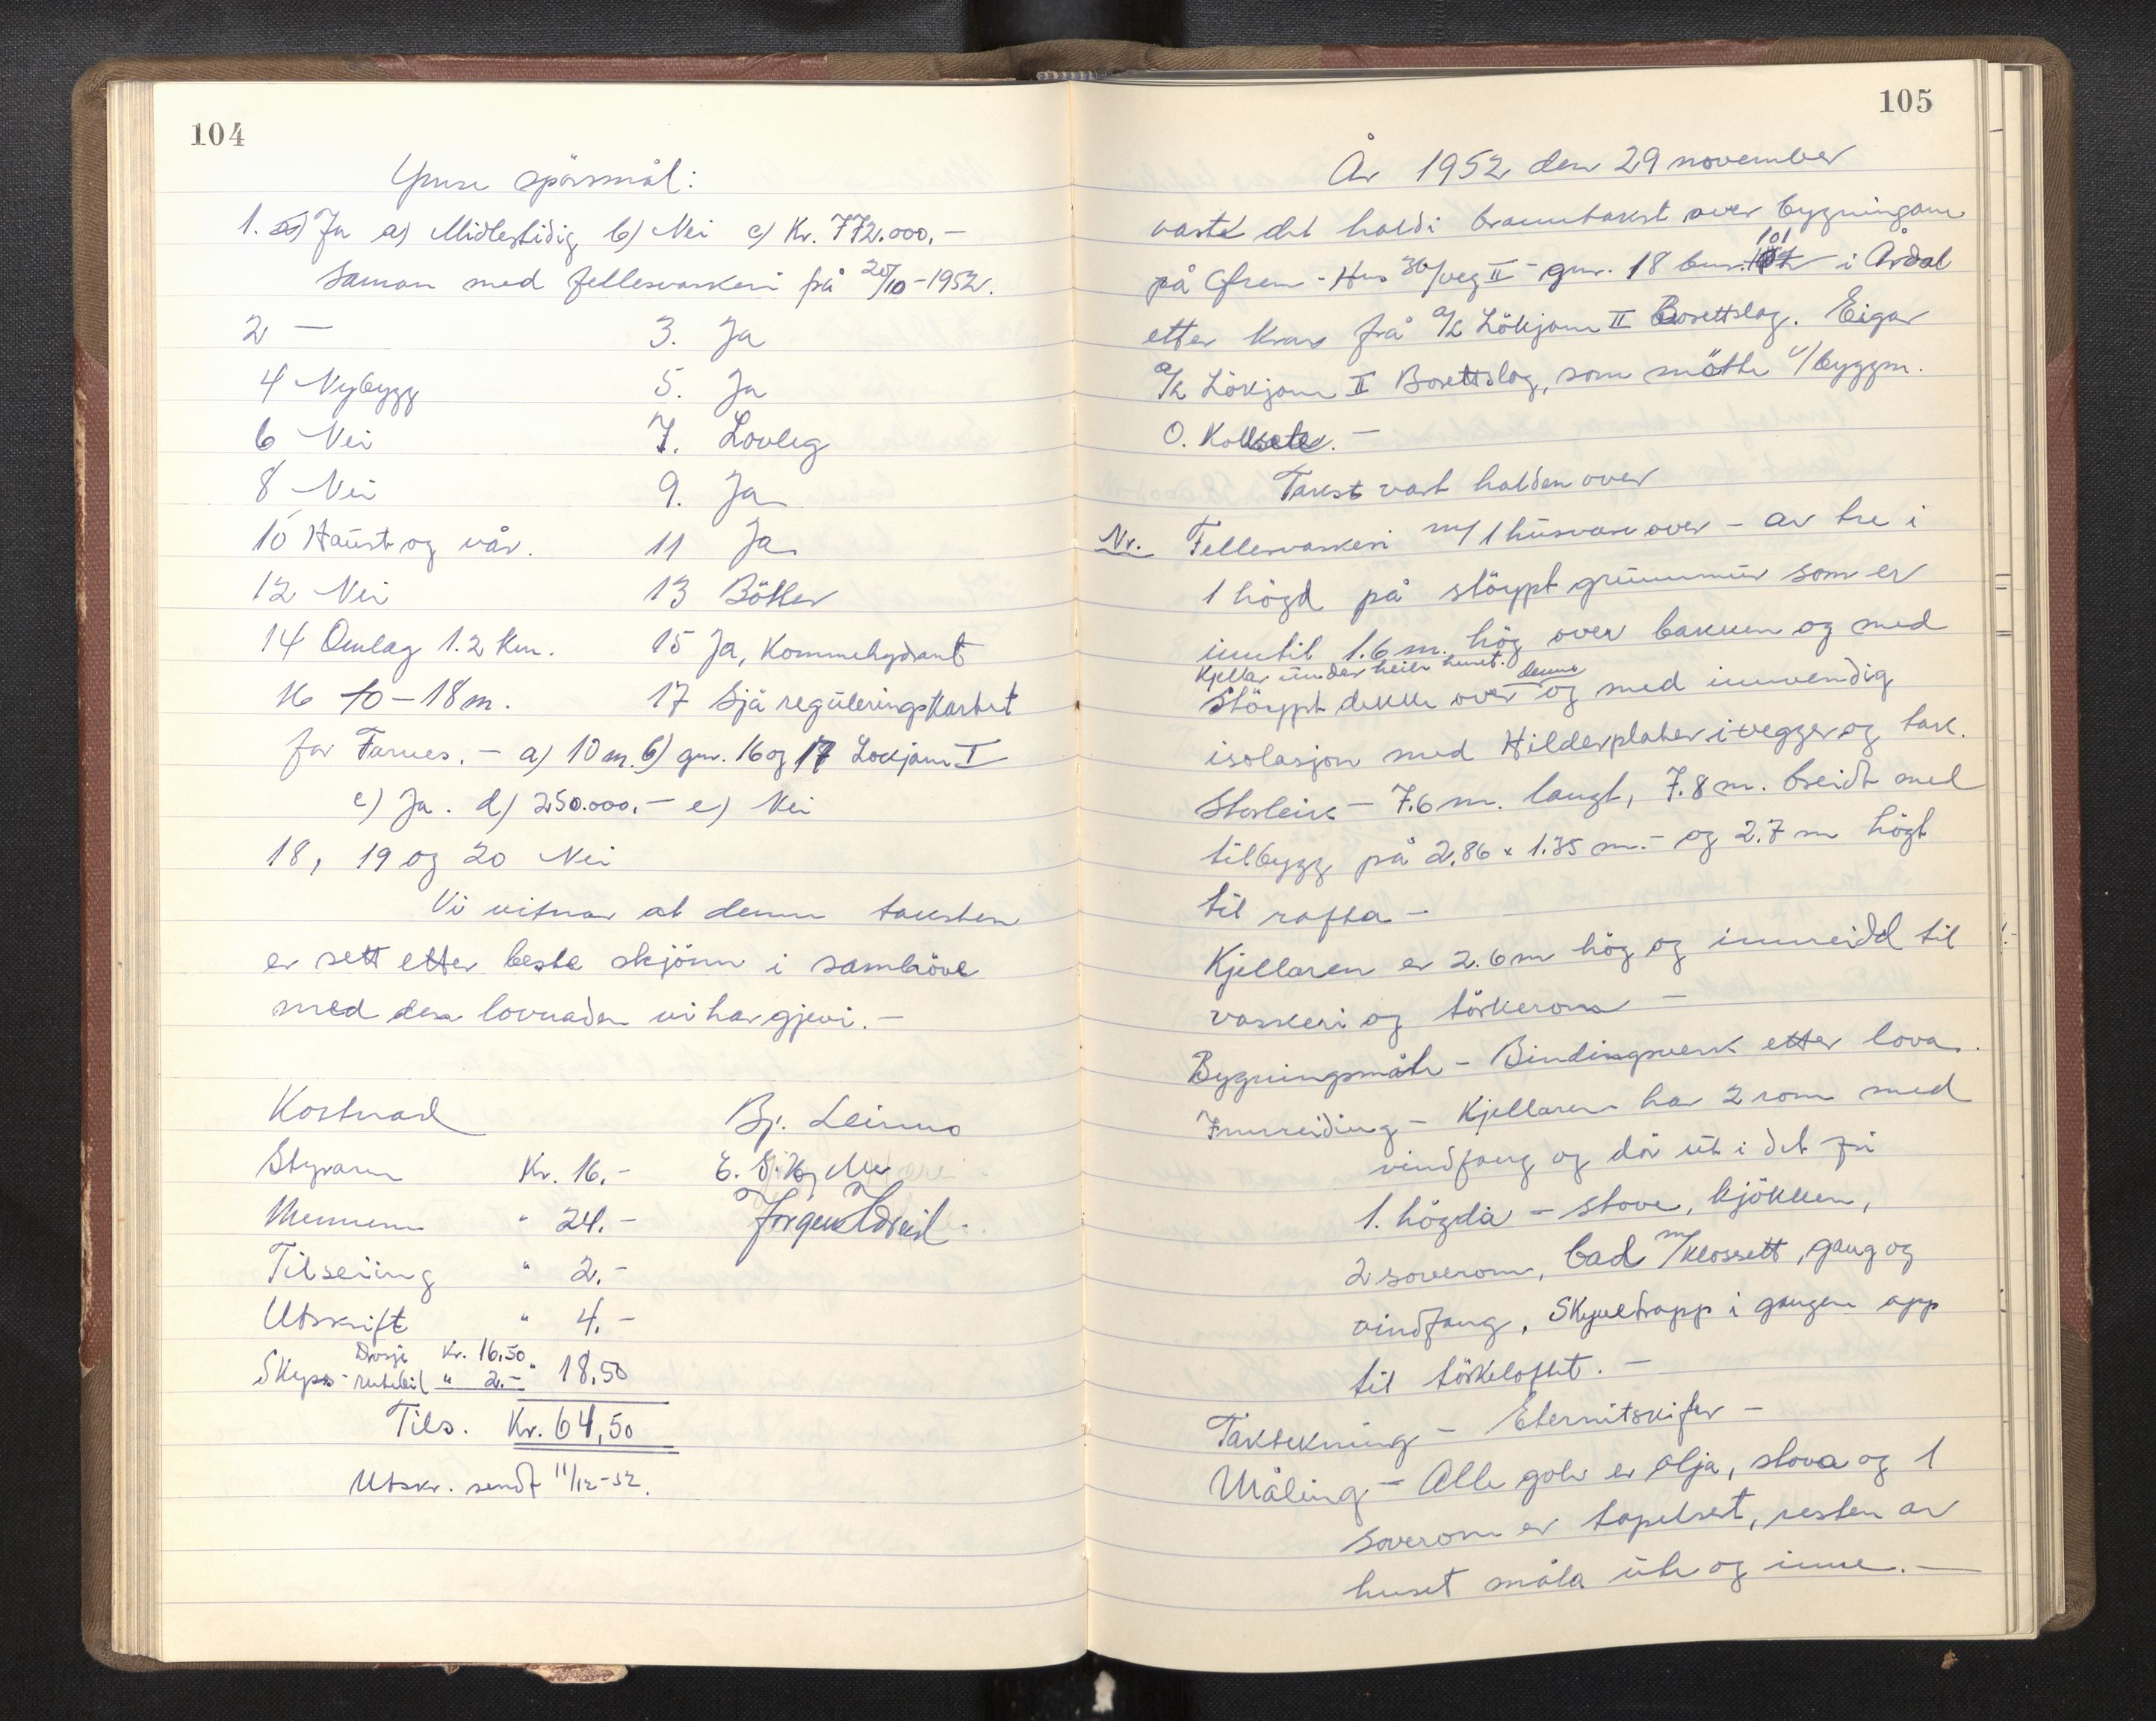 104
Ymse spörsmål:
1. Ja a) Midlertidig b) Nei c) Kr. 772.000.-
saman med fellesvaskeri på 20/10-1952.
2 —
3. Ja
4 Nybygg
5. Ja
6 Nei
7. Lovleg
8 Nei
9. Ja
10 Haust og vår.
11 Ja
12 Nei
13 Bötter
14 Omlag 1.2 km.
15 Ja, Kommehydrant
16 10-18 m.
17 Sjå reguleringskartet
for Farnes. - a) 10 m. b) gnr. 16 og 17 Lökjam I
c) Ja. d) 250.000.- e) Nei
18, 19 og 20 Nei
Vi vitnar at denne taksten
er sett etter beste skjönn i samhöve
med den lovnaden vi har gjevi. -
Kostnad
Bj. Leirmo
Styraren Kr. 16.-
Mennene " 24.-
Jörgen Hdreid
Tilseiing " 2.-
Utskrift " 4.-
Skyss - Drosje Kr. 16,50
rutebil " 2.- " 18,50
Tils. Kr. 64,50
Utskr. sendt 11/12-52.
105
År 1952 den 29 november
vart det haldi branntakst over bygningane
på Grem - Hus 36/veg II - gnr. 18 bnr. 101 i Årdal
etter krav frå A/L Lökjam II Borettslag. Eigar
A/L Lökjam II Borettslag, som mötte v/byggm.
O. Kollsete. -
Takst vart halden over
Nr. Fellesvaskeri m/1 husvære over - av tre i
1 högd på stöypt grunnmur som er
inntil 1.6 m. hög over bakken og med
Kjellar under heile huset. denne
stöypt dekke over og med innvendig
isolasjon med Hilderplater i vegger og tak.
Storleik - 7.6 m. langt, 7.8 m. breidt med
tilbygg på 2.86 x 1.35 m. - og 2.7 m högt
til rafta -
Kjellaren er 2.6 m hög og innreidd til
vaskeri og törkerom -
Bygningsmåte - Bindingsverk etter lova.
Innreiding - Kjellaren har 2 rom med
vindfang og dör ut i det fri
1. högda - stove, kjökken,
2 soverom, bad m/klossett, gang og
vindfang, Skyvetrapp i gangen opp
til törkeloftet. -
Taktekning - Eternitskifer -
Måling - Alle golv er olja, stova og 1
soverom er tapetsert, resten av
huset måla ute og inne. -